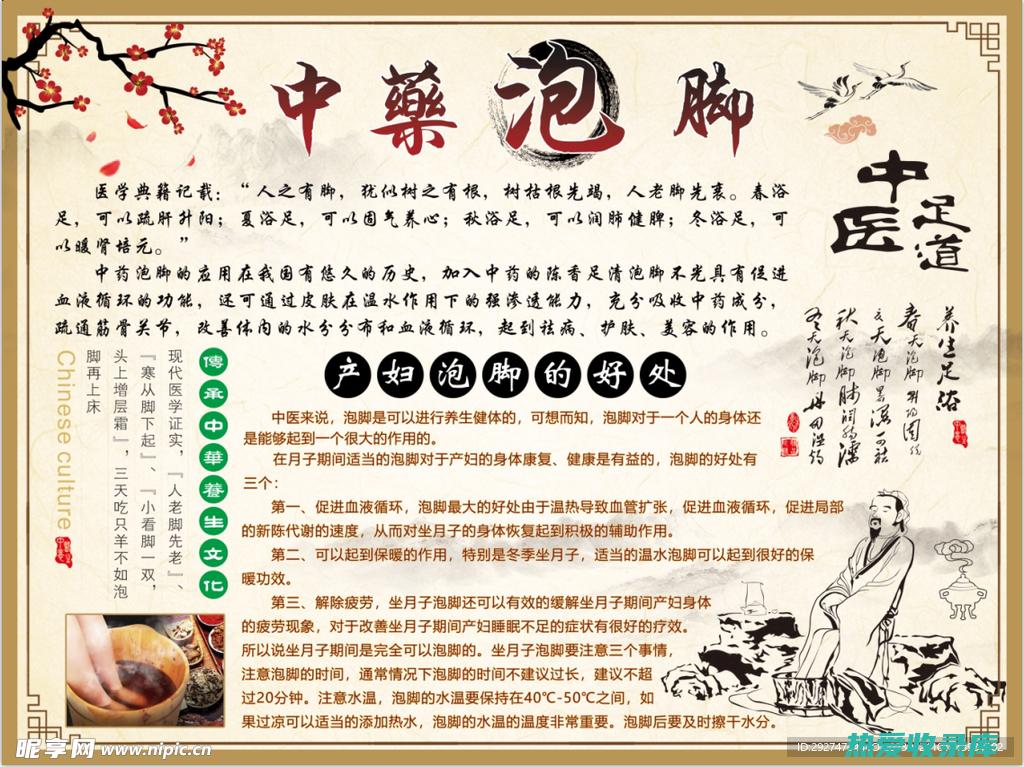 中藥泡脚
医学典籍记载：“人之有脚，犹似树之有根，树枯根先竭，人老脚先衰。春浴
足，可以疏肝升阳；夏浴足，可以固气养心；秋浴足，可以润肺健脾；冬浴足，可
以暖肾培元。”
中药泡脚的应用在我国有悠久的历史，加入中药的陈香足清泡脚不光具有促进
血液循环的功能，还可通过皮肤在温水作用下的强渗透能力，充分吸收中药成分，
疏通筋骨关节，改善体内的水分分布和血液循环，起到祛病、护肤、美容的作用。
中医
足道
养生足浴
傳承中華養生文化
现代医学证实，『人老脚先老』、
『寒从脚下起』、『小看脚一双，
头上增层霜』，三天吃只羊不如泡
脚再上床
Chinese culture
产妇泡脚的好处
中医来说，泡脚是可以进行养生健体的，可想而知，泡脚对于一个人的身体还
是能够起到一个很大的作用的。
在月子期间适当的泡脚对于产妇的身体康复、健康是有益的，泡脚的好处有
三个：
第一、促进血液循环，泡脚最大的好处由于温热导致血管扩张，促进血液循环，促进局部
的新陈代谢的速度，从而对坐月子的身体恢复起到积极的辅助作用。
第二、可以起到保暖的作用，特别是冬季坐月子，适当的温水泡脚可以起到很好的保
暖功效。
第三、解除疲劳，坐月子泡脚还可以有效的缓解坐月子期间产妇身体
的疲劳现象，对于改善坐月子期间产妇睡眠不足的症状有很好的疗效。
所以说坐月子期间是完全可以泡脚的。坐月子泡脚要注意三个事情，
注意泡脚的时间，通常情况下泡脚的时间不建议过长，建议不超
过20分钟。注意水温，泡脚的水温要保持在40℃-50℃之间，如
果过凉可以适当的添加热水，泡脚的水温的温度非常重要。泡脚后要及时擦干水分。
昵享网 www.nipic.cn
热爱收录库